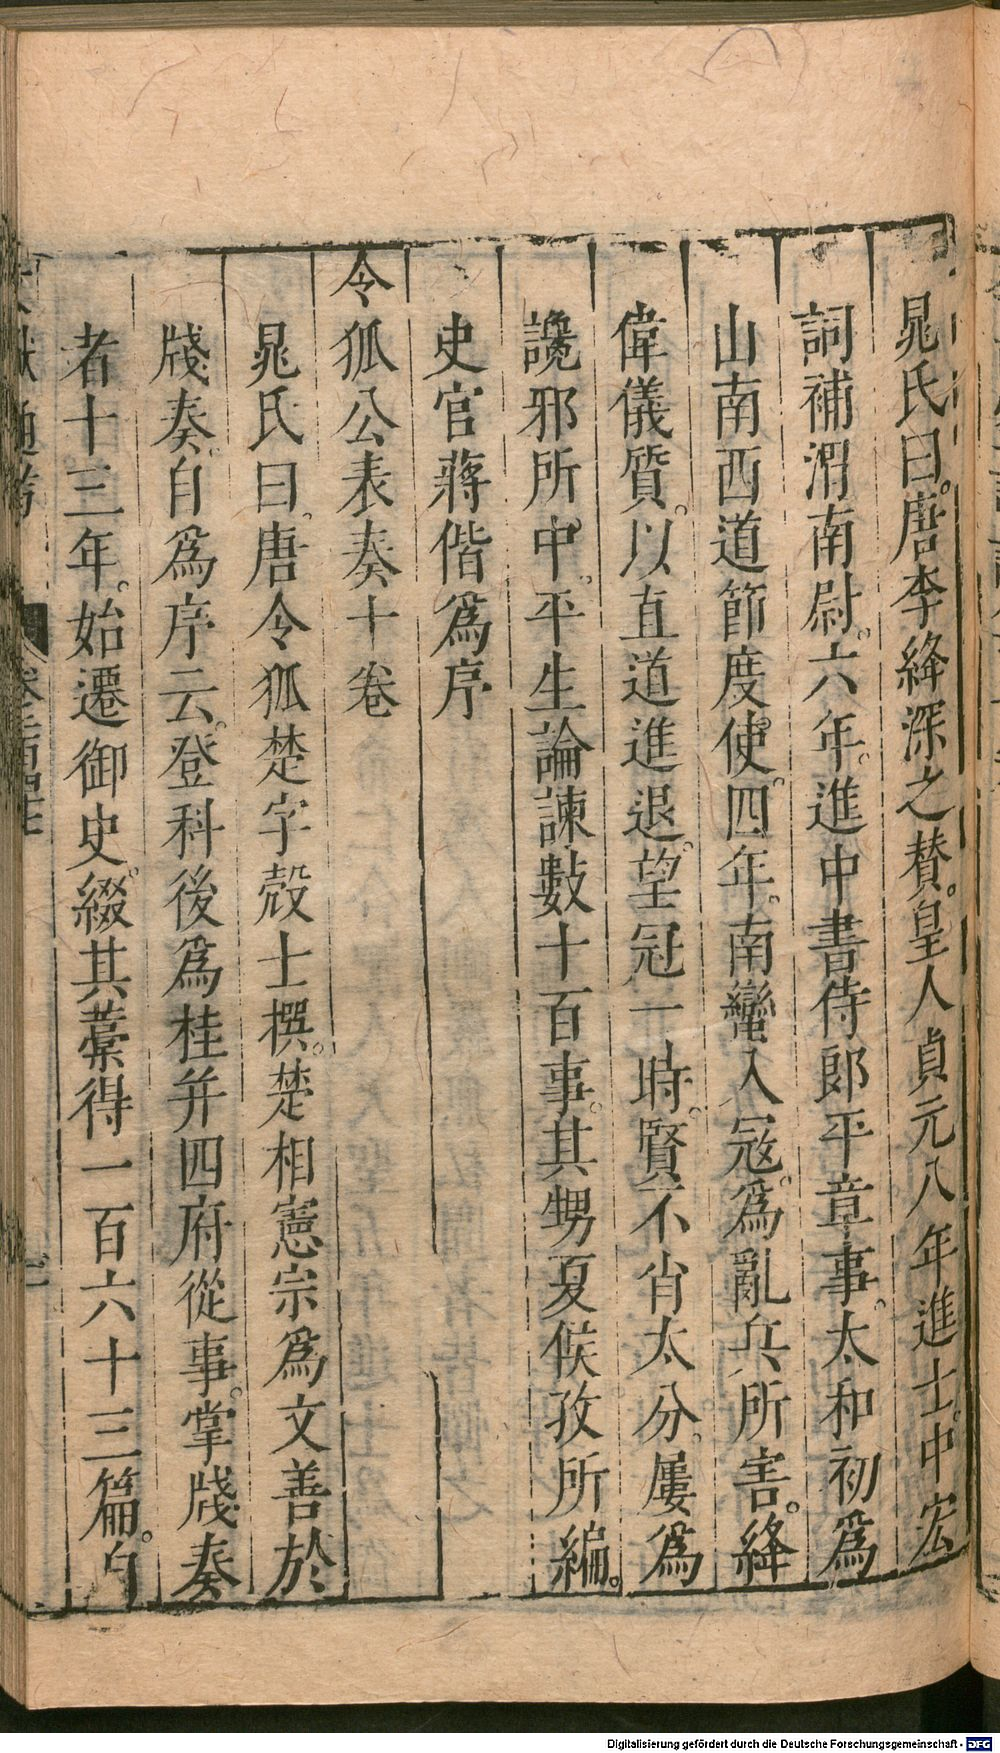 晁氏曰。唐李絳深之賛。皇人貞元八年進士。中宏
詞補渭南尉。六年。進中書侍郎平章事。太和初爲
山南西道節度使。四年。南蠻入冦。爲亂兵所害。絳
偉儀質。以直道進退。望冠一時。賢不肖太分。屢爲
讒邪所中。平生論諫數十百事。其甥夏侯孜所編。
史官蔣偕爲序
令狐公表奏十卷
晁氏曰。唐令狐楚字殻士撰。楚相憲宗爲文善於
牋奏。自爲序云。登科後爲桂并四府從事。掌牋奏
者十三年。始遷御史。綴其藁得一百六十三篇。自
文獻通考 卷二百
Digitalisierung gefördert durch die Deutsche Forschungsgemeinschaft - DFG